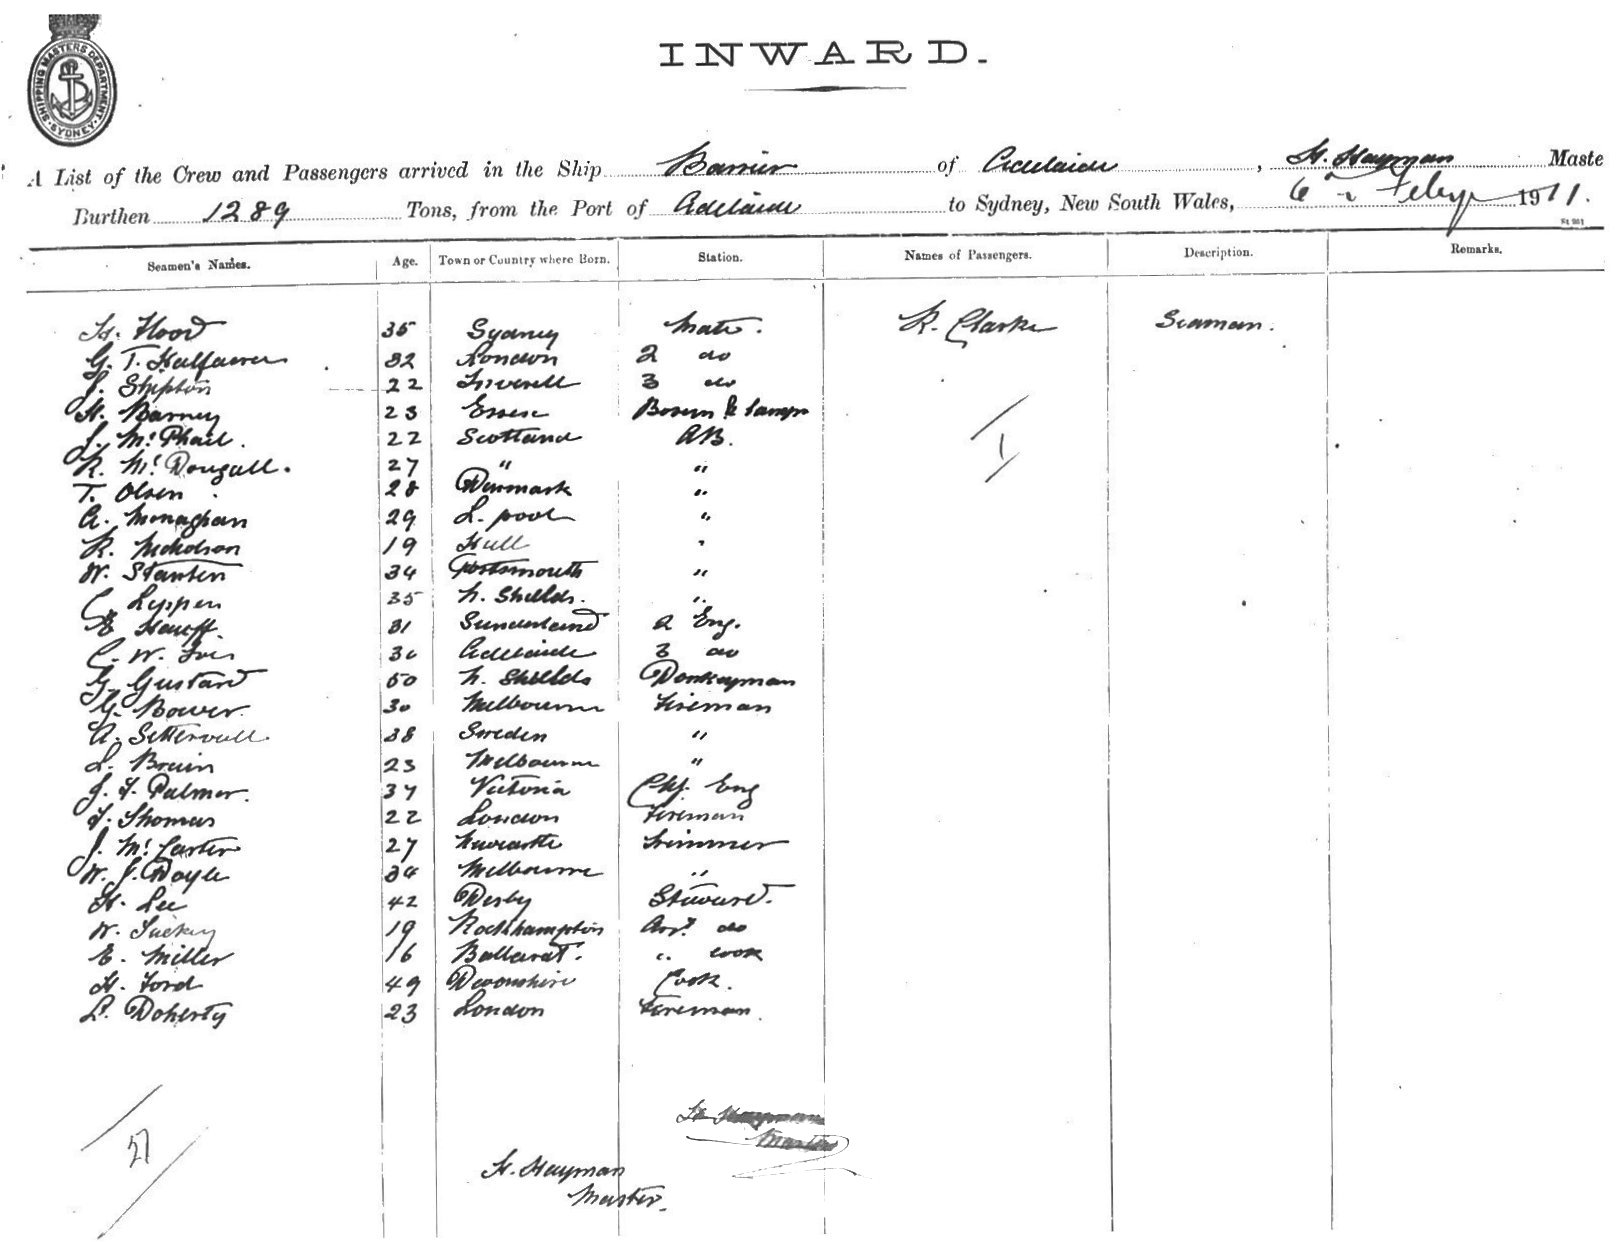 SHIPPING MASTERS DEPARTMENT. SYDNEY
INWARD.
A List of the Crew and Passengers arrived in the Ship Barrier of Adelaide, H. Hayman Maste
Burthen 1289 Tons, from the Port of Adelaide to Sydney, New South Wales, 6th Feby 1911.
St 261
Seamen's Names. Age. Town or Country where Born. Station. Names of Passengers. Description. Remarks.
H. Hood 35 Sydney Mate. R. Clarke Seaman.
G. T. Halfacree 32 London 2 do
J. Shipton 22 Inverell 3 do
H. Barney 23 Essex Bosun & Lamps
J. Mc Phail. 22 Scotland AB.
R. Mc Dougall. 27 " "
T. Olsen 28 Denmark "
A. Monaghan 29 L. pool "
R. Nicholson 19 Hull "
W. Stanten 34 Portsmouth "
C. Leppen 35 N. Shields. "
E Hauff. 31 Sunderland 2 Eng.
C. W. 30 Adelaide 3 do
G. Gustard 50 N. Shields Donkeyman
G. Bower. 30 Melbourne Fireman
A. Settervall 38 Sweden "
L. Bruin 23 Melbourne "
J. F. Palmer. 37 Victoria Chf. Eng
F. Thomas 22 London Fireman
J. Mc Carter 27 Newcastle Trimmer
W. J. Doyle 34 Melbourne "
H. Lee 42 Derby Steward.
W. Tuckey 19 Rockhampton Asst. do
E. Miller 16 Ballarat. " cook
H. Ford 49 Devonshire Cook.
L. Doherty 23 London Fireman.
1
27
H. Hayman
Master
H. Hayman
Master.